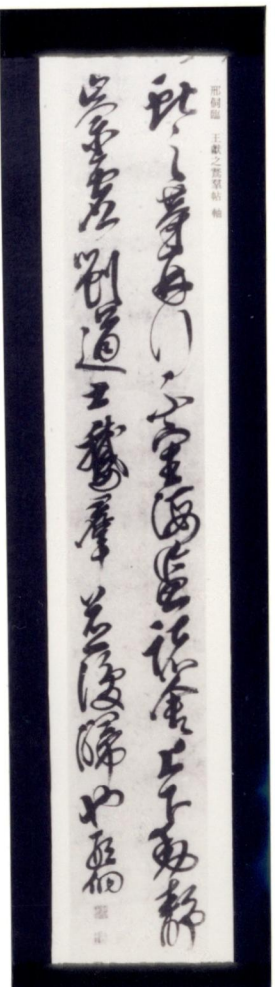 邢侗臨 王獻之鵞羣帖 軸
獻之等再拜不審海鹽諸舍上下動靜
崇虛劉道士鵞羣並復歸也邢侗